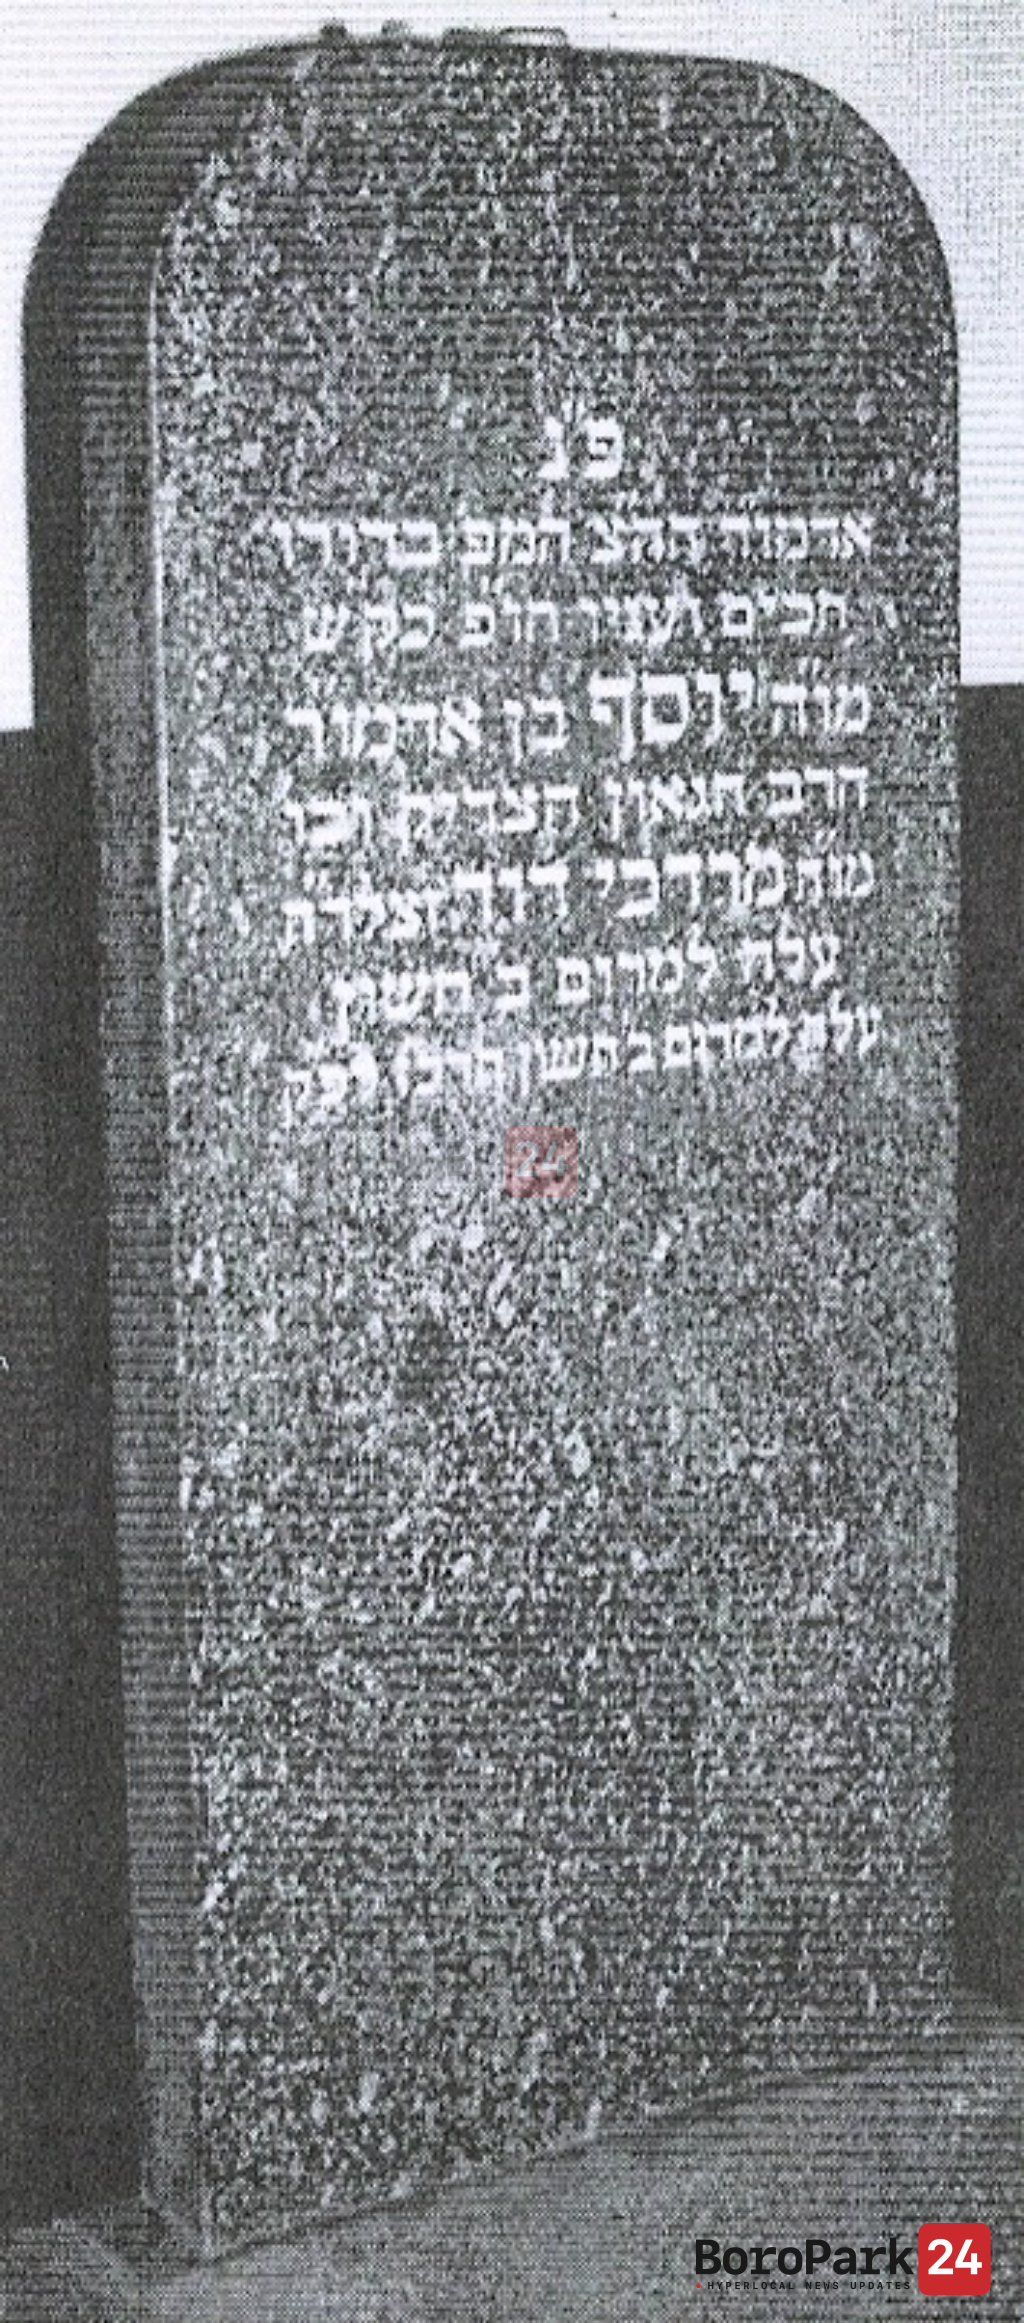 פ״נ
אדמו״ר הה״צ המפ׳ בדורו
חכים ועניו חו״פ בק״ש
מו״ה יוסף בן אדמו״ר
הרב הגאון הצדיק וכו׳
מו״ה מרדכי דוד זצלה״ה
עלה למרום ב חשון
עלה למרום ב חשון לפ״ק
24
BoroPark 24
HYPERLOCAL NEWS UPDATES